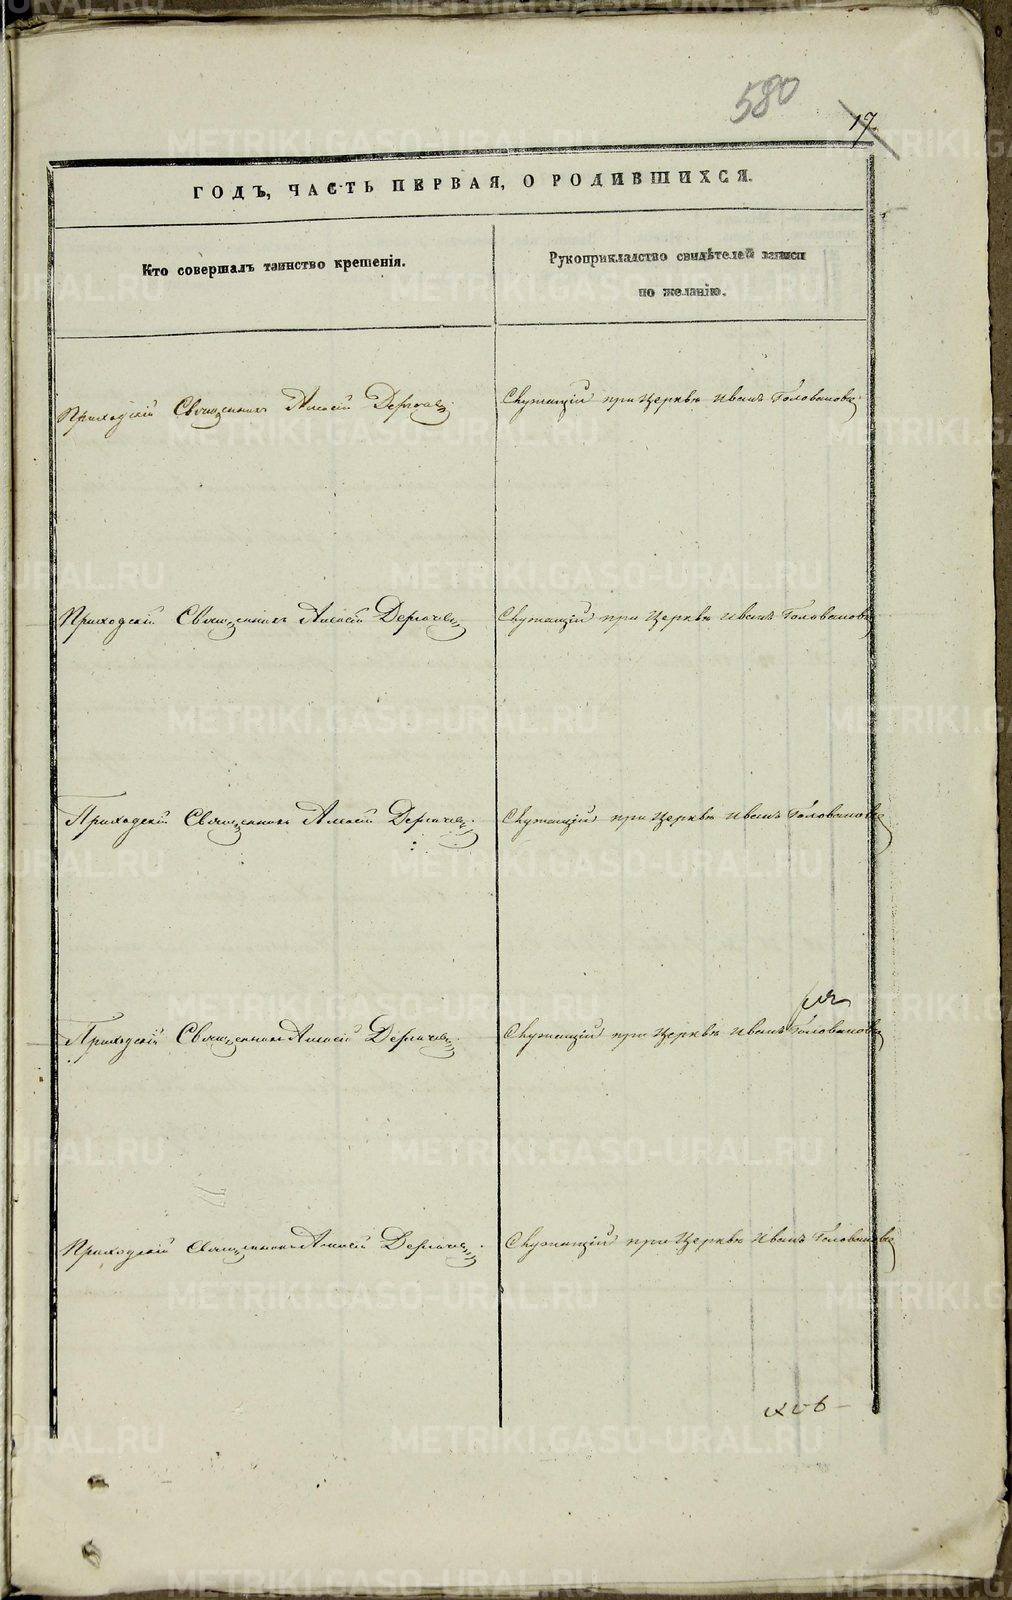 580
17.
ГОДЪ, ЧАСТЬ ПЕРВАЯ, О РОДИВШИХСЯ.
Кто совершалъ таинство крещенія.
Рукоприкладство свидѣтелей записи
по желанію.
Приходскій Священникъ Алексій Дерпачевъ
Служащій при Церквѣ Иванъ Головановъ
Приходскій Священникъ Алексій
Служащій при Церквѣ Иванъ Головановъ
Приходскій Священникъ Алексій
Служащій при Церквѣ Иванъ Головановъ
Приходскій Священникъ Алексій
Служащій при Церквѣ Иванъ Головановъ
Приходскій Священникъ Алексій
Служащій при Церквѣ Иванъ Головановъ
METRIKI.GASO-URAL.RU